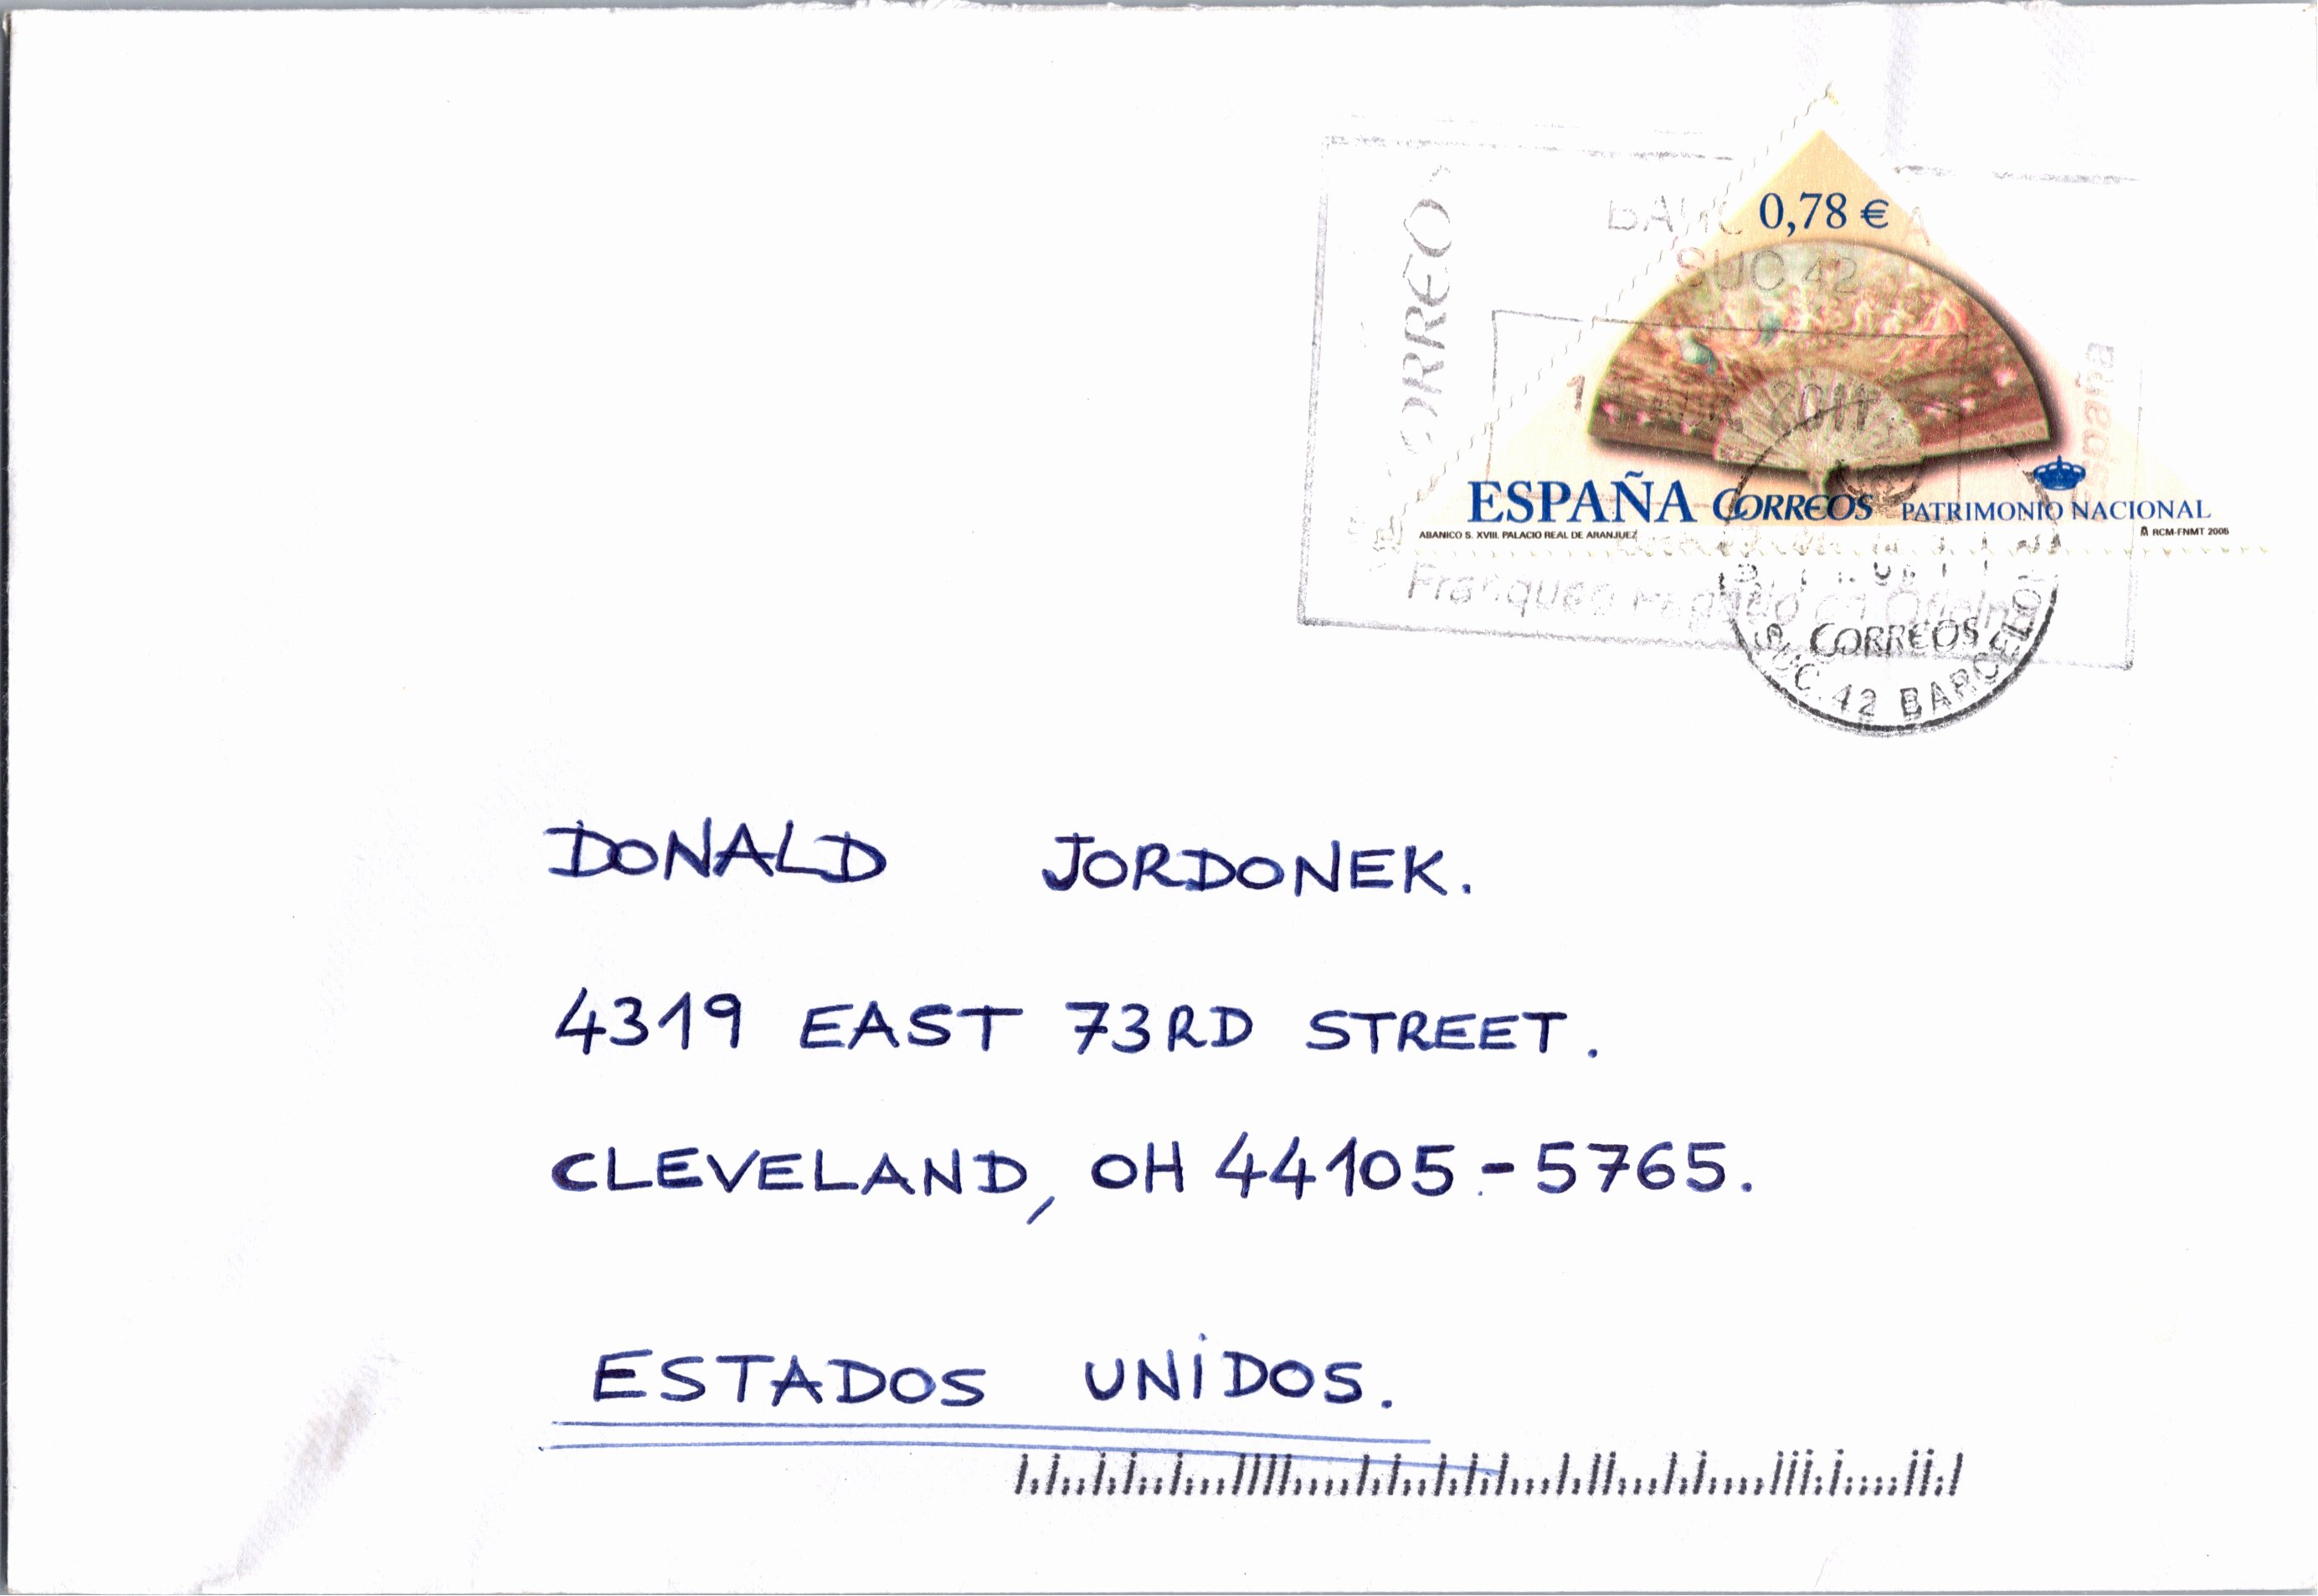 CORREO
SUC 42
2011
España
Franqueo Pagado en Origen
0,78 €
ESPAÑA CORREOS PATRIMONIO NACIONAL
ABANICO S. XVIII. PALACIO REAL DE ARANJUEZ
RCM-FNMT 2005
CORREOS
SUC. 42 BARCELONA
DONALD JORDONEK.
4319 EAST 73RD STREET.
CLEVELAND, OH 44105.-5765.
ESTADOS UNIDOS.